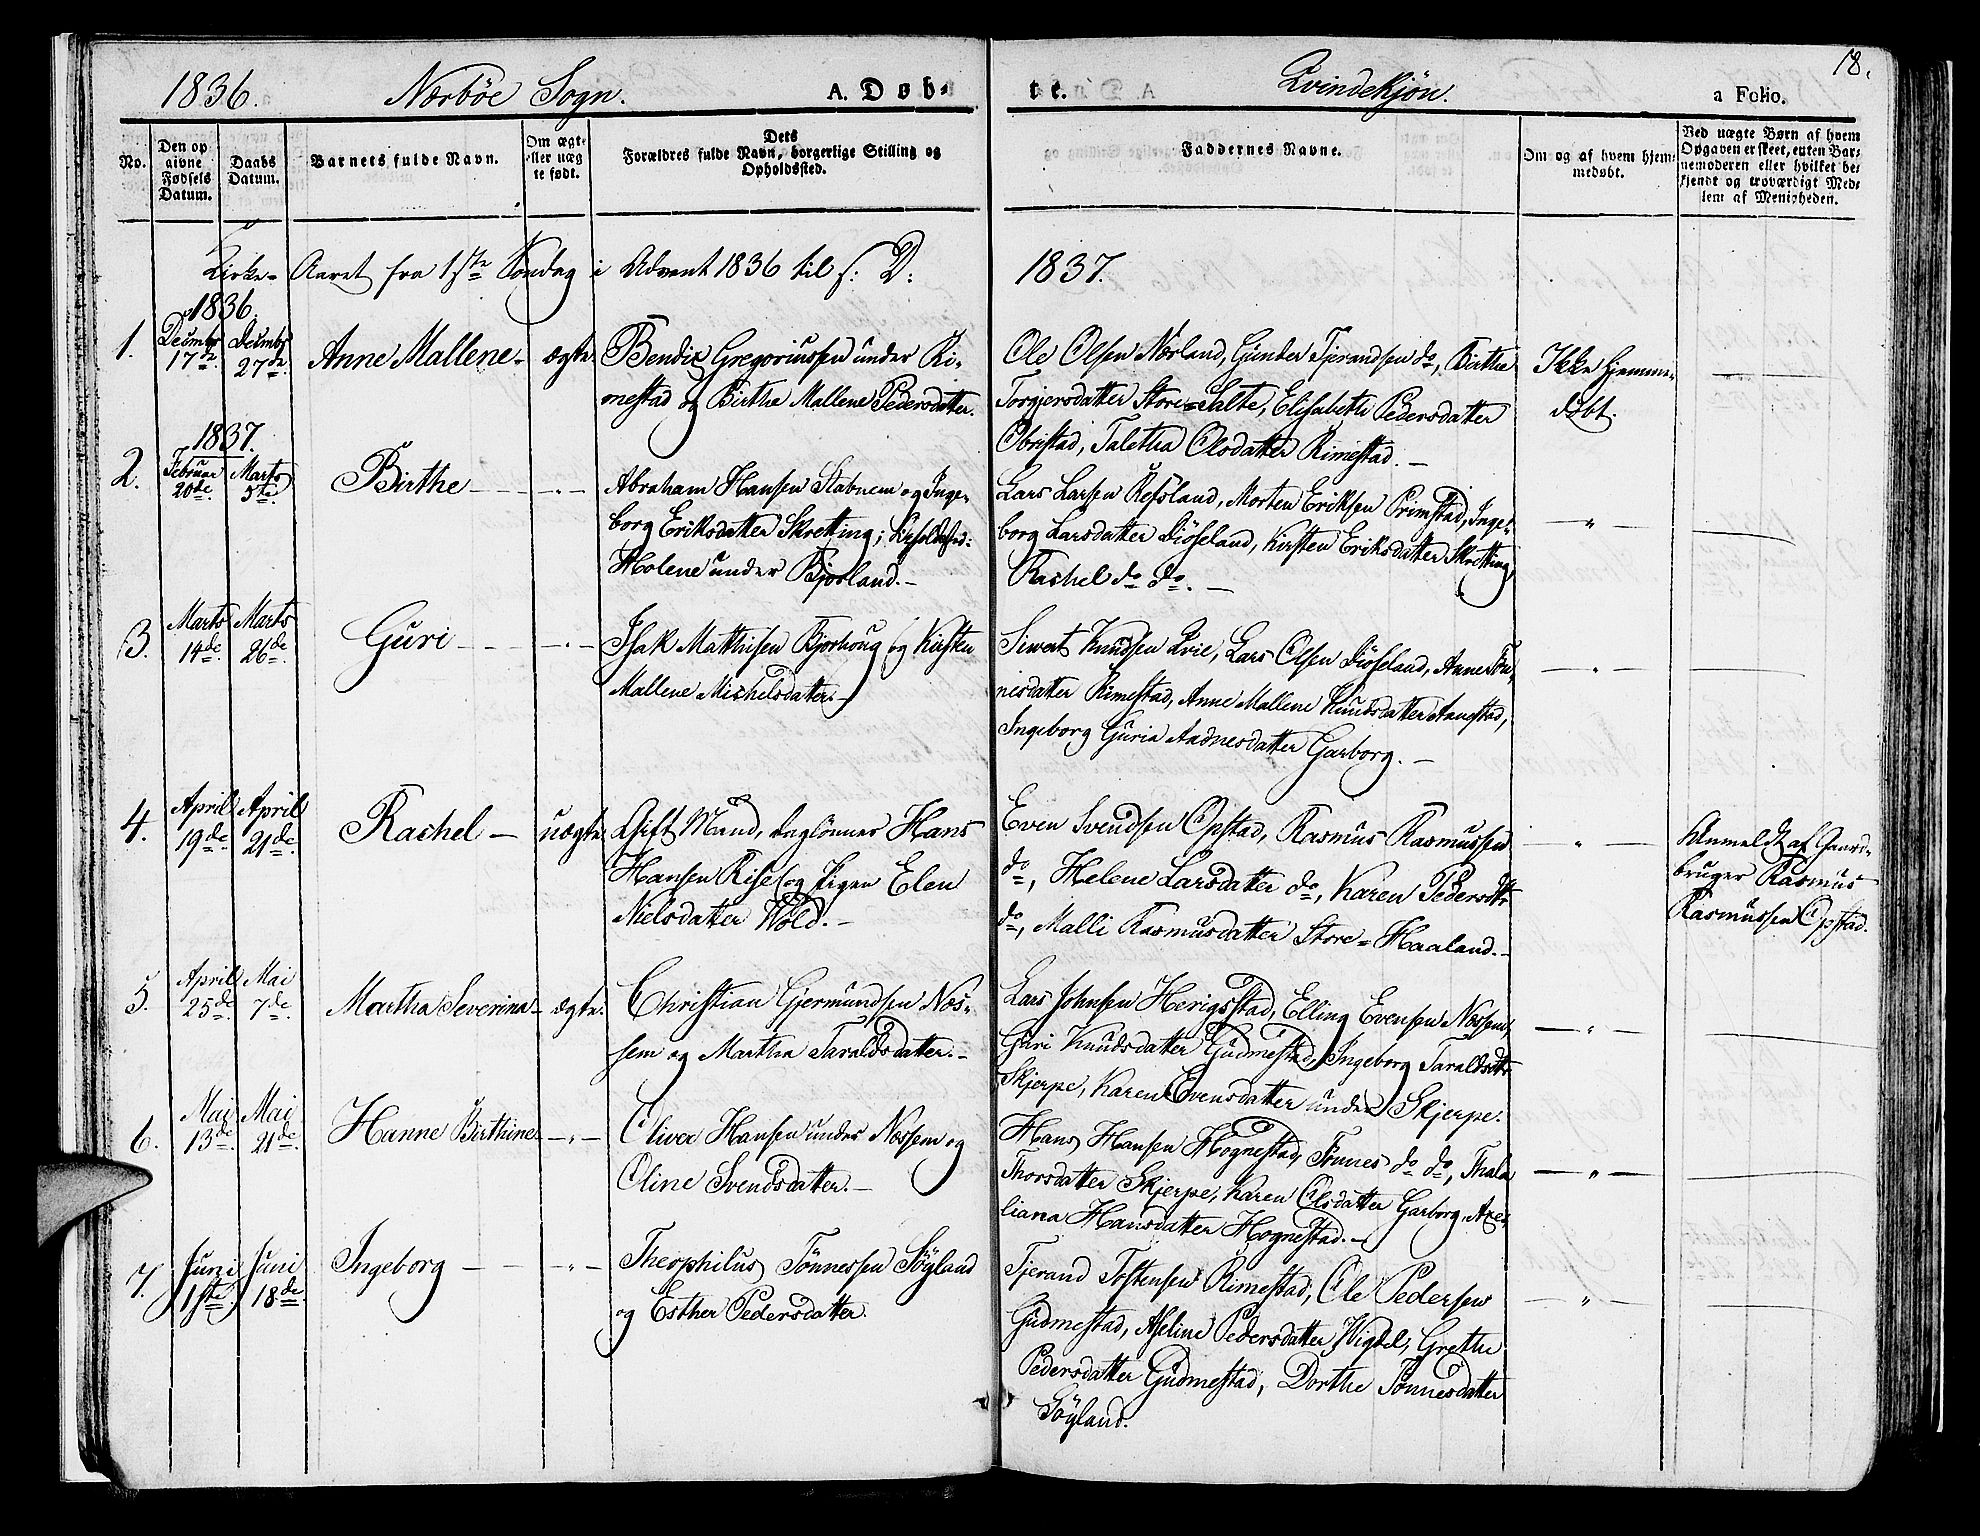 18.
1836. Nærbøe Sogn. A. Døb-
te. Qvindekjøn. a Folio.
No.
Den op
givne
Fødsels
Datum.
Daabs
Datum.
Barnets fulde Navn.
Om ægte
eller uæg
te født.
Dets
Forældres fulde Navn, borgerlige Stilling og
Opholdssted.
Faddernes Navne.
Om og af hvem hjem-
medøbt.
Ved uægte Børn af hvem
Opgaven er skeet, enten Bar-
nemoderen eller hvilket be-
kjendt og troværdigt Med-
lem af Menigheden.
Kirke-Aaret fra 1ste Søndag i Advent 1836 til s: D: 1837.
1836.
1.
Decmbr
17de
Decmbr
27de
Anne Mallene - ægte
Bendix Gregoriussen under Ri-
mestad og Birthe Mallene Pedersdatter.
Ole Olsen Nærland, Gunder Tjerandsen do, Birthe
Torgjersdatter Store-Salte, Elisabeth Pedersdatter
Obrestad, Taletha Olsdatter Rimestad. -
Ikke hjemme-
døbt.
1837.
2.
Februar
20de
Marts
5te
Birthe - " -
Abraham Hansen Stabnem og Inge-
borg Eriksdatter Skretting; Opholdssted:
Holene under Bjorland. -
Lars Larsen Refsland, Morten Eriksen Primstad, Inge-
borg Larsdatter Diösland, Kirsten Eriksdatter Skretting
Rachel do do. -
- " -
3.
Marts
14de
Marts
26de
Guri - " -
Isak Matthisen Bjorhoug og Kirsten
Mallene Michelsdatter. -
Siwert Knudsen Qvie, Lars Olsen Diösland, Anne Tøn-
nesdatter Rimestad, Anne Mallene Knudsdatter Anestad,
Ingeborg Guria Aadnesdatter Garborg. -
- " -
4.
April
19de
April
21de
Rachel - uægte
Gift Mand, daglönner Hans
Hansen Rise og Pigen Elen
Nielsdatter Wold. -
Even Svendsen Opstad, Rasmus Rasmussen
do, Helene Larsdatter do, Karen Pedersdtr
do, Malli Rasmusdatter Store-Haaland. -
- " -
Anmeldt af Gaard-
bruger Rasmus
Rasmussen Opstad.
5.
April
25de
Mai
7de
Martha Severina - ægte
Christian Gjermundsen Næs-
sem og Martha Taraldsdatter. -
Lars Johnsen Herigstad, Elling Evensen Næssem,
Guri Knudsdatter Gudmestad, Ingeborg Taraldsdtr
Skjerpe, Karen Evensdatter under Skjerpe.
- " -
6.
Mai
13de
Mai
21de
Hanne Birthine - " -
Oliver Hansen under Næssem og
Oline Svendsdatter. -
Hans Hansen Hognestad, Tønnes do do, Thala
Thorsdatter Skjerpe, Karen Olsdatter Garborg, Axe-
liana Hansdatter Hognestad. -
- " -
7.
Juni
1ste
Juni
18de
Ingeborg - " -
Theophilus Tønnessen Söyland
og Esther Pedersdatter.
Tjerand Tostensen Rimestad, Ole Pedersen
Gudmestad, Aseline Pedersdatter Wigdel, Grethe
Pedersdatter Gudmestad, Dorthe Tønnesdatter
Söyland.
- " -